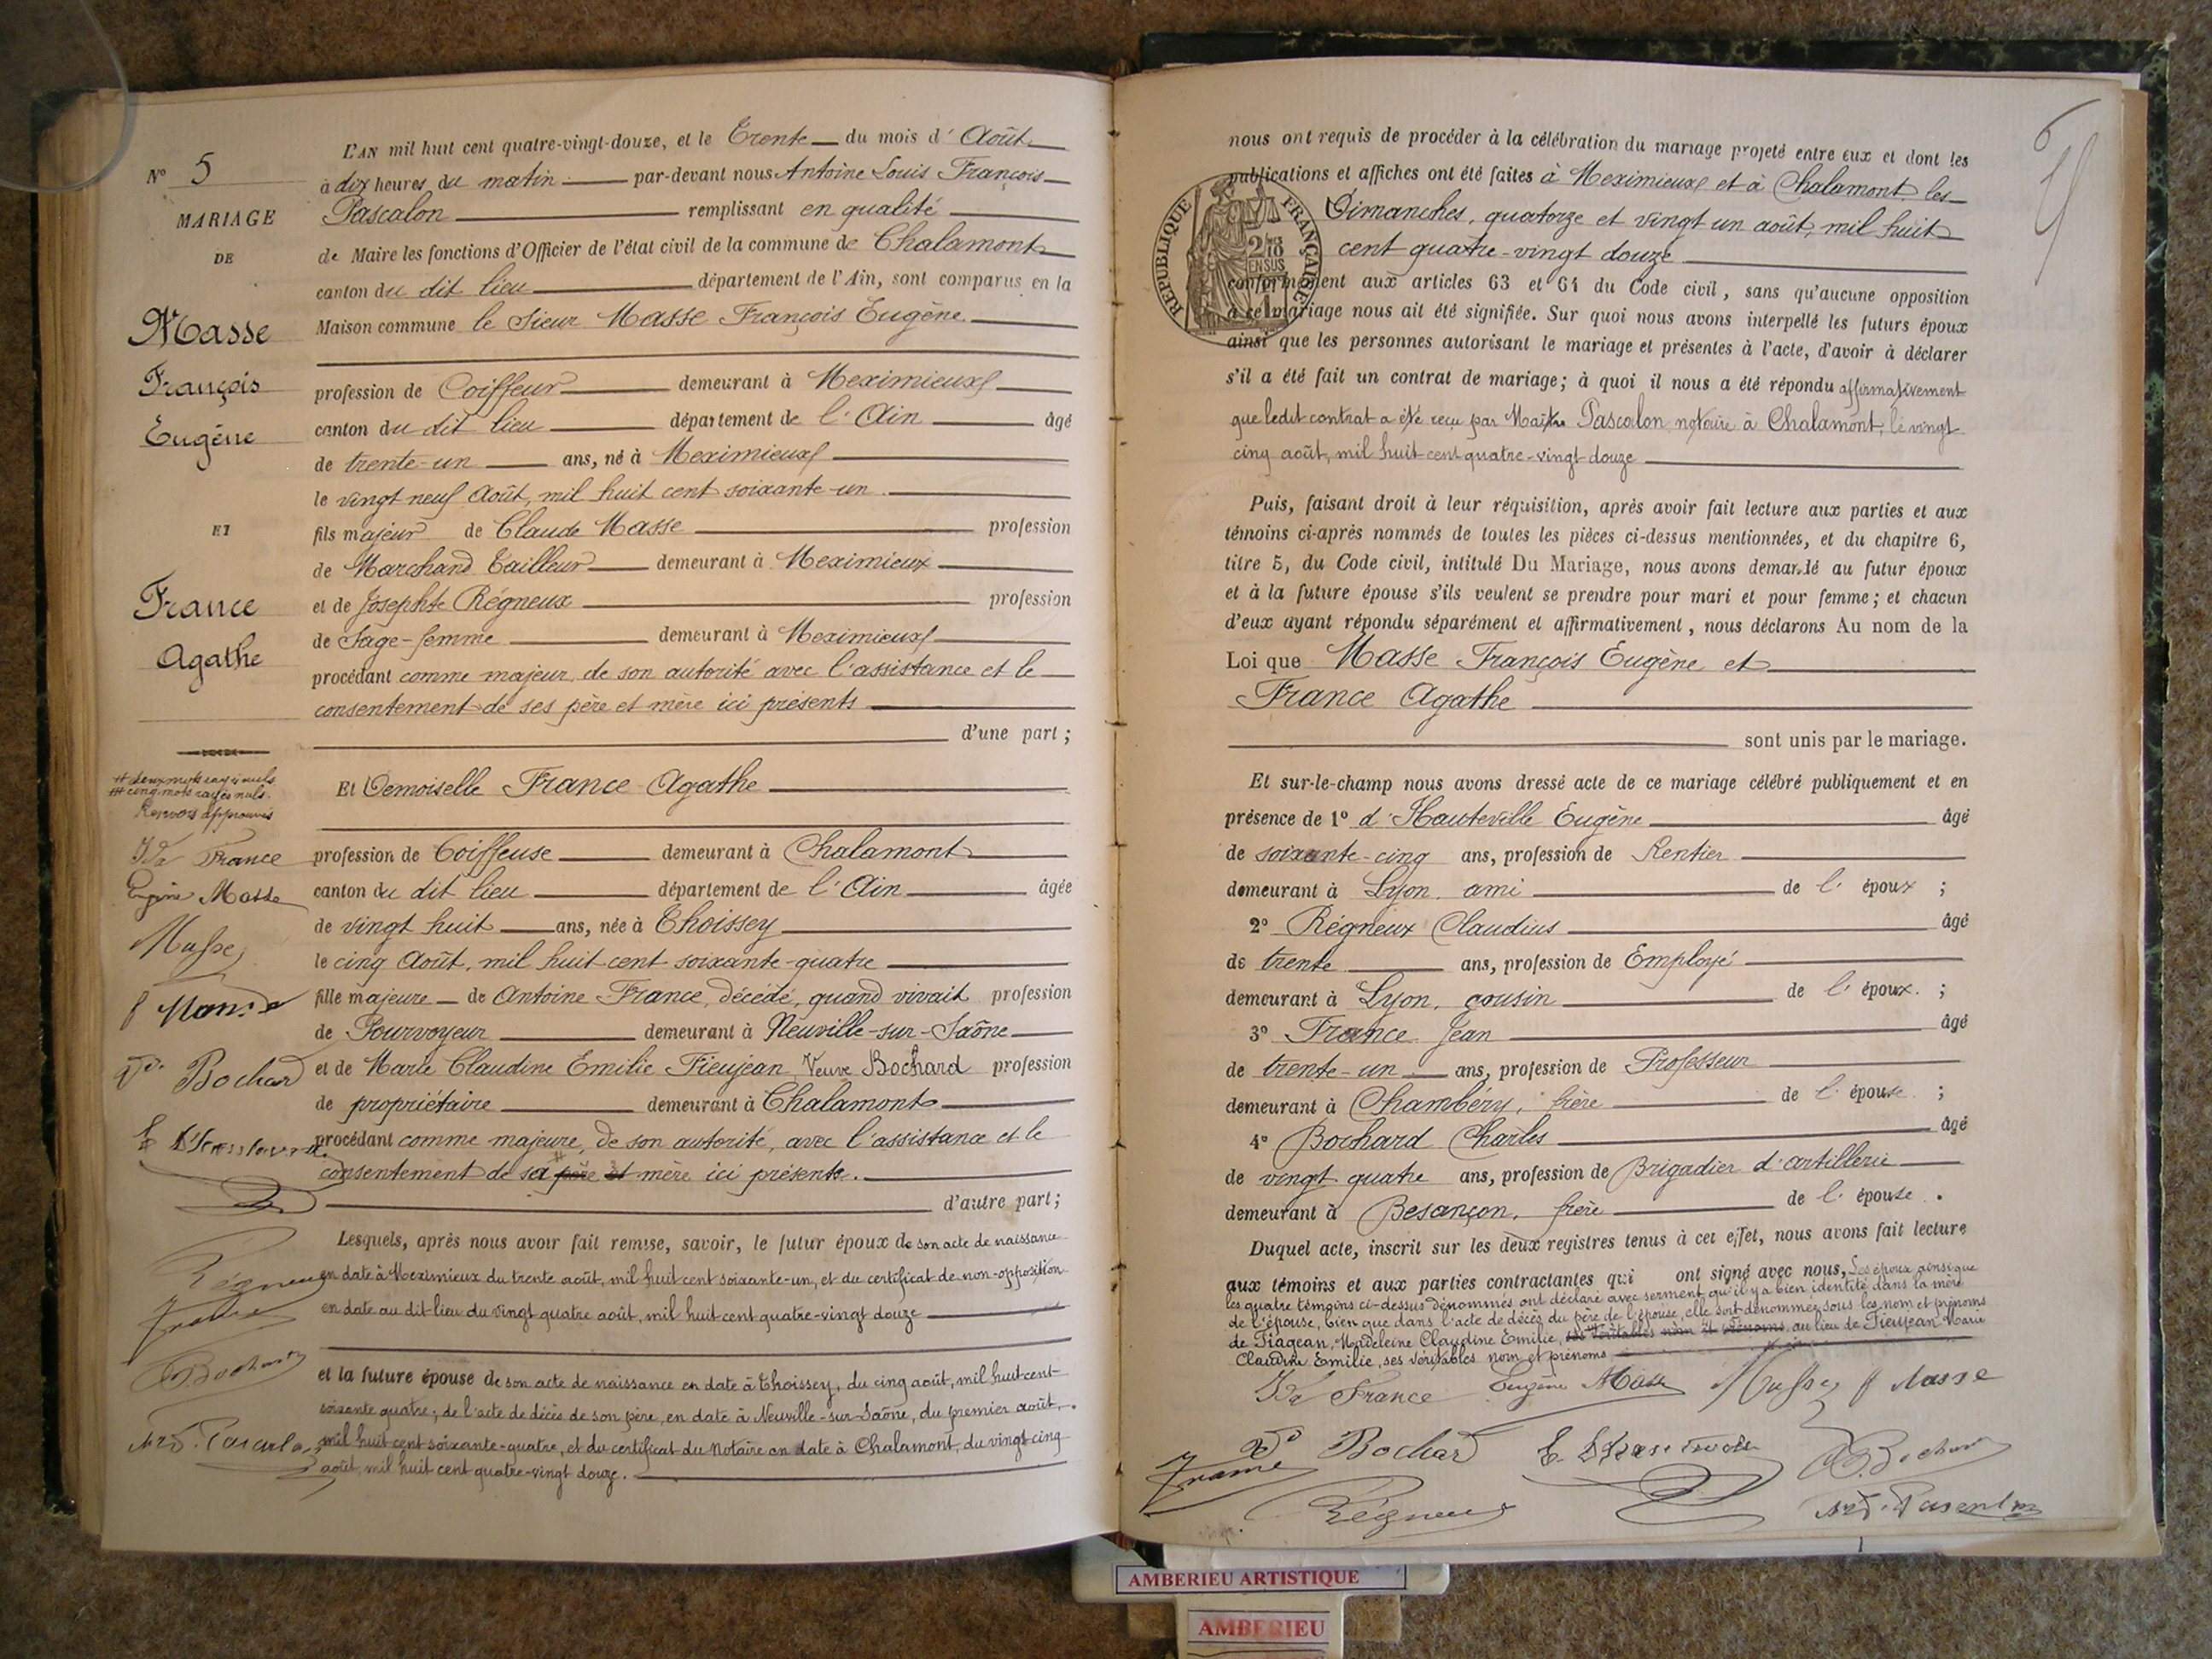 L'AN mil huit cent quatre-vingt-douze, et le Trente du mois d'Août
N° 5
à dix heures du matin par-devant nous Antoine Louis François
MARIAGE
Pascalon remplissant en qualité
DE
de Maire les fonctions d'Officier de l'état civil de la commune de Chalamont
canton du dit lieu département de l'Ain, sont comparus en la
Masse
Maison commune le Sieur Masse François Eugène
François
profession de Coiffeur demeurant à Meximieux
Eugène
canton du dit lieu département de l'Ain âgé
de trente-un ans, né à Meximieux
le vingt neuf Août, mil huit cent soixante-un
ET
fils majeur de Claude Masse profession
de Marchand Tailleur demeurant à Meximieux
France
et de Josephte Régneux profession
de Sage-femme demeurant à Meximieux
Agathe
procédant comme majeur, de son autorité avec l'assistance et le
consentement de ses père et mère ici présents
d'une part;
# deux mots rayés nuls.
## cinq mots rayés nuls.
Renvois approuvés
Et Demoiselle France Agathe
France
profession de Coiffeuse demeurant à Chalamont
Eugène Masse
canton du dit lieu département de l'Ain âgée
de vingt huit ans, née à Thoissey
Masse
le cinq Août, mil huit cent soixante-quatre
fille majeure de Antoine France, décédé, quand vivait profession
de Pourvoyeur demeurant à Neuville-sur-Saône
Bochard
et de Marie Claudine Emilie Fieujean Veuve Bochard profession
de propriétaire demeurant à Chalamont
procédant comme majeure, de son autorité, avec l'assistance et le
consentement de sa père et mère ici présente.
d'autre part;
Lesquels, après nous avoir fait remise, savoir, le futur époux de son acte de naissance
Régneux
en date à Meximieux du trente août, mil huit cent soixante-un, et du certificat de non-opposition
France
en date au dit lieu du vingt quatre août, mil huit cent quatre-vingt douze
Bochard
et la future épouse de son acte de naissance en date à Thoissey, du cinq août, mil huit cent
soixante quatre; de l'acte de décès de son père, en date à Neuville-sur-Saône, du premier août,
mil huit cent soixante-quatre, et du certificat du Notaire en date à Chalamont, du vingt cinq
août, mil huit cent quatre-vingt douze.
nous ont requis de procéder à la célébration du mariage projeté entre eux et dont les
publications et affiches ont été faites à Meximieux et à Chalamont les
Dimanches, quatorze et vingt un août, mil huit
cent quatre-vingt douze
RÉPUBLIQUE FRANÇAISE
conformément aux articles 63 et 64 du Code civil, sans qu'aucune opposition
à ce mariage nous ait été signifiée. Sur quoi nous avons interpellé les futurs époux
ainsi que les personnes autorisant le mariage et présentes à l'acte, d'avoir à déclarer
s'il a été fait un contrat de mariage; à quoi il nous a été répondu affirmativement
que ledit contrat a été reçu par Maître Pascalon, notaire à Chalamont, le vingt
cinq août, mil huit cent quatre-vingt-douze
Puis, faisant droit à leur réquisition, après avoir fait lecture aux parties et aux
témoins ci-après nommés de toutes les pièces ci-dessus mentionnées, et du chapitre 6,
titre 5, du Code civil, intitulé Du Mariage, nous avons demandé au futur époux
et à la future épouse s'ils veulent se prendre pour mari et pour femme; et chacun
d'eux ayant répondu séparément et affirmativement, nous déclarons Au nom de la
Loi que Masse François Eugène et
France Agathe
sont unis par le mariage.
Et sur-le-champ nous avons dressé acte de ce mariage célébré publiquement et en
présence de 1° d'Hauteville Eugène âgé
de soixante-cinq ans, profession de Rentier
demeurant à Lyon, ami de l'époux;
2° Régneux Claudius âgé
de trente ans, profession de Employé
demeurant à Lyon, cousin de l'époux.;
3° France Jean âgé
de trente-un ans, profession de Professeur
demeurant à Chambéry, frère de l'épouse;
4° Bochard Charles âgé
de vingt quatre ans, profession de Brigadier d'artillerie
demeurant à Besançon, frère de l'épouse.
Duquel acte, inscrit sur les deux registres tenus à cet effet, nous avons fait lecture
aux témoins et aux parties contractantes qui ont signé avec nous, Les époux ainsi que
les quatre témoins ci-dessus dénommés ont déclaré avec serment qu'il y a bien identité dans la mère
de l'épouse, bien que dans l'acte de décès du père de l'épouse, elle soit dénommée sous les nom et prénoms
de Fiagean, Madeleine Claudine Emilie, ses véritables nom et prénoms, au lieu de Fieujean Marie
Claudine Emilie, ses véritables nom et prénoms
France Eugène Masse Masse Masse
France Bochard Bochard
Régneux
AMBERIEU ARTISTIQUE
AMBERIEU